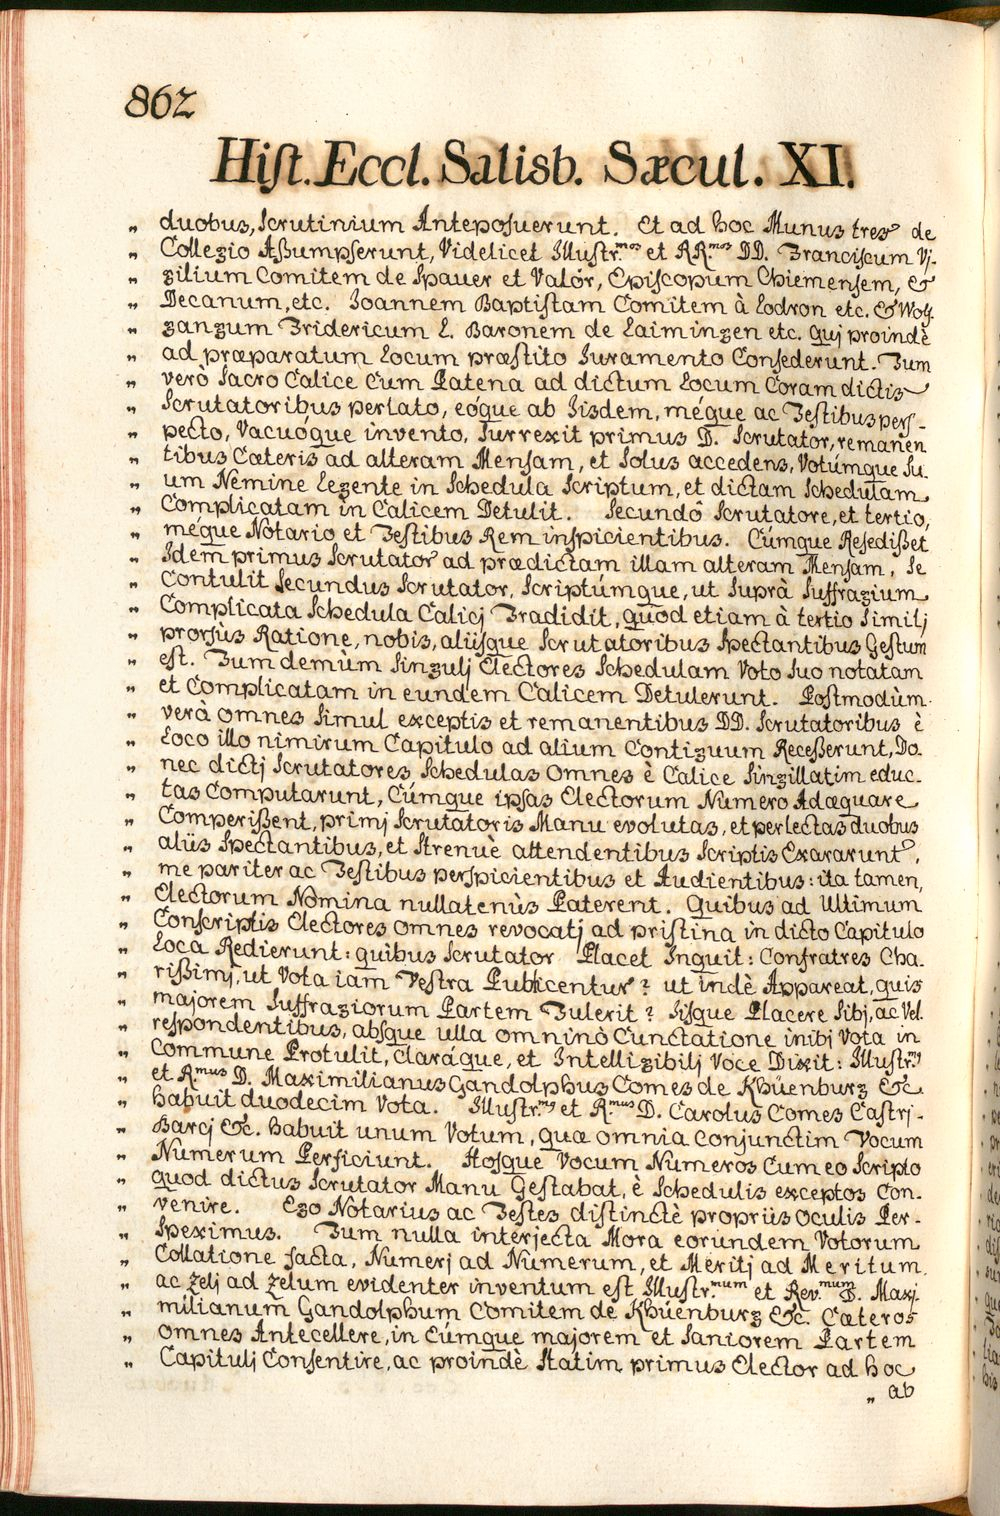 862
Hist. Eccl. Salisb. Sæcul. XI.
„ duobus, Scrutinium Anteposuerunt. Et ad hoc Munus tres de
„ Collegio Aßumpserunt, Videlicet Illustr.mos et RR.mos DD. Franciscum Vi-
„ gilium Comitem de Spauer et Valör, Episcopum Chiemensem, &
„ Decanum, etc. Joannem Baptistam Comitem à Lodron etc. & Wolf-
„ gangum Fridericum L. Baronem de Laimingen etc. Qui proindè
„ ad præparatum Locum præstito Juramento Consederunt. Tum
„ verò Sacro Calice Cum Patena ad dictum Locum Coram dictis
„ Scrutatoribus perlato, eóque ab Iisdem, méque ac Testibus pers-
„ pecto, Vacuóque invento, Surrexit primus D. Scrutator, remanen
„ tibus Cæteris ad alteram Mensam, et Solus accedens, Votúmque Su-
„ um Nemine Legente in Schedula Scriptum, et dictam Schedulam
„ Complicatam in Calicem Detulit. Secundô Scrutatore, et tertio,
„ méque Notario et Testibus Rem inspicientibus. Cúmque Resedißet
„ Idem primus Scrutator ad prædictam illam alteram Mensam, Se
„ Contulit Secundus Scrutator, Scriptúmque, ut Suprà Suffragium
„ Complicata Schedula Calicj Tradidit, quod etiam à tertio Similj
„ prorsùs Ratione, nobis, aliisque Scrutatoribus Spectantibus Gestum
„ est. Tum demùm Singulj Electores Schedulam Voto Suo notatam
„ et Complicatam in eundem Calicem Detulerunt. Postmodùm
„ verà omnes Simul exceptis et remanentibus DD. Scrutatoribus è
„ Loco illo nimirum Capitulo ad alium Contiguum Receßerunt, Do-
„ nec dictj Scrutatores Schedulas Omnes è Calice Singillatim educ-
„ tas Computarunt, Cúmque ipsas Electorum Numero Adæquare
„ Comperißent, primj Scrutatoris Manu evolutas, et perlectas duobus
„ aliis Spectantibus, et Strenuè attendentibus Scriptis Exararunt,
„ me pariter ac Testibus perspicientibus et Audientibus: ita tamen,
„ Electorum Nomina nullatenùs Paterent. Quibus ad Ultimum
„ Conscriptis Electores omnes revocatj ad pristina in dicto Capitulo
„ Loca Redierunt: quibus Scrutator Placet Inquit: Confratres Cha-
„ rißimj, ut Vota iam Vestra Publicentur? ut indè Appareat, quis
„ majorem Suffragiorum Partem Tulerit? Iisque Placere Sibj, ac Vel.
„ respondentibus, absque ulla omninò Cunctatione inibj Vota in
„ Commune Protulit, Claráque, et Intelligibilj Voce Dixit: Illustr.mus
„ et R.mus D. Maximilianus Gandolphus Comes de Khüenburg &c.
„ habuit duodecim Vota. Illustr.mus et R.mus D. Carolus Comes Castrj-
„ Barcj &c. habuit unum Votum, quæ omnia Conjunctim Vocum
„ Numerum Perficiunt. Hosque Vocum Numeros Cum eo Scripto
„ quod dictus Scrutator Manu Gestabat, è Schedulis exceptos Con-
„ venire. Ego Notarius ac Testes distinctè propriis Oculis Per-
„ Speximus. Tum nulla interjecta Mora eorundem Votorum
„ Collatione facta, Numerj ad Numerum, et Meritj ad Meritum
„ ac Zelj ad Zelum evidenter inventum est Illustr.mum et Rev.mum D. Maxj-
„ milianum Gandolphum Comitem de Khüenburg &c. Cæteros
„ Omnes Antecellere, in Cúmque majorem et Saniorem Partem
„ Capitulj Consentire, ac proindè Statim primus Elector ad hoc
„ ab